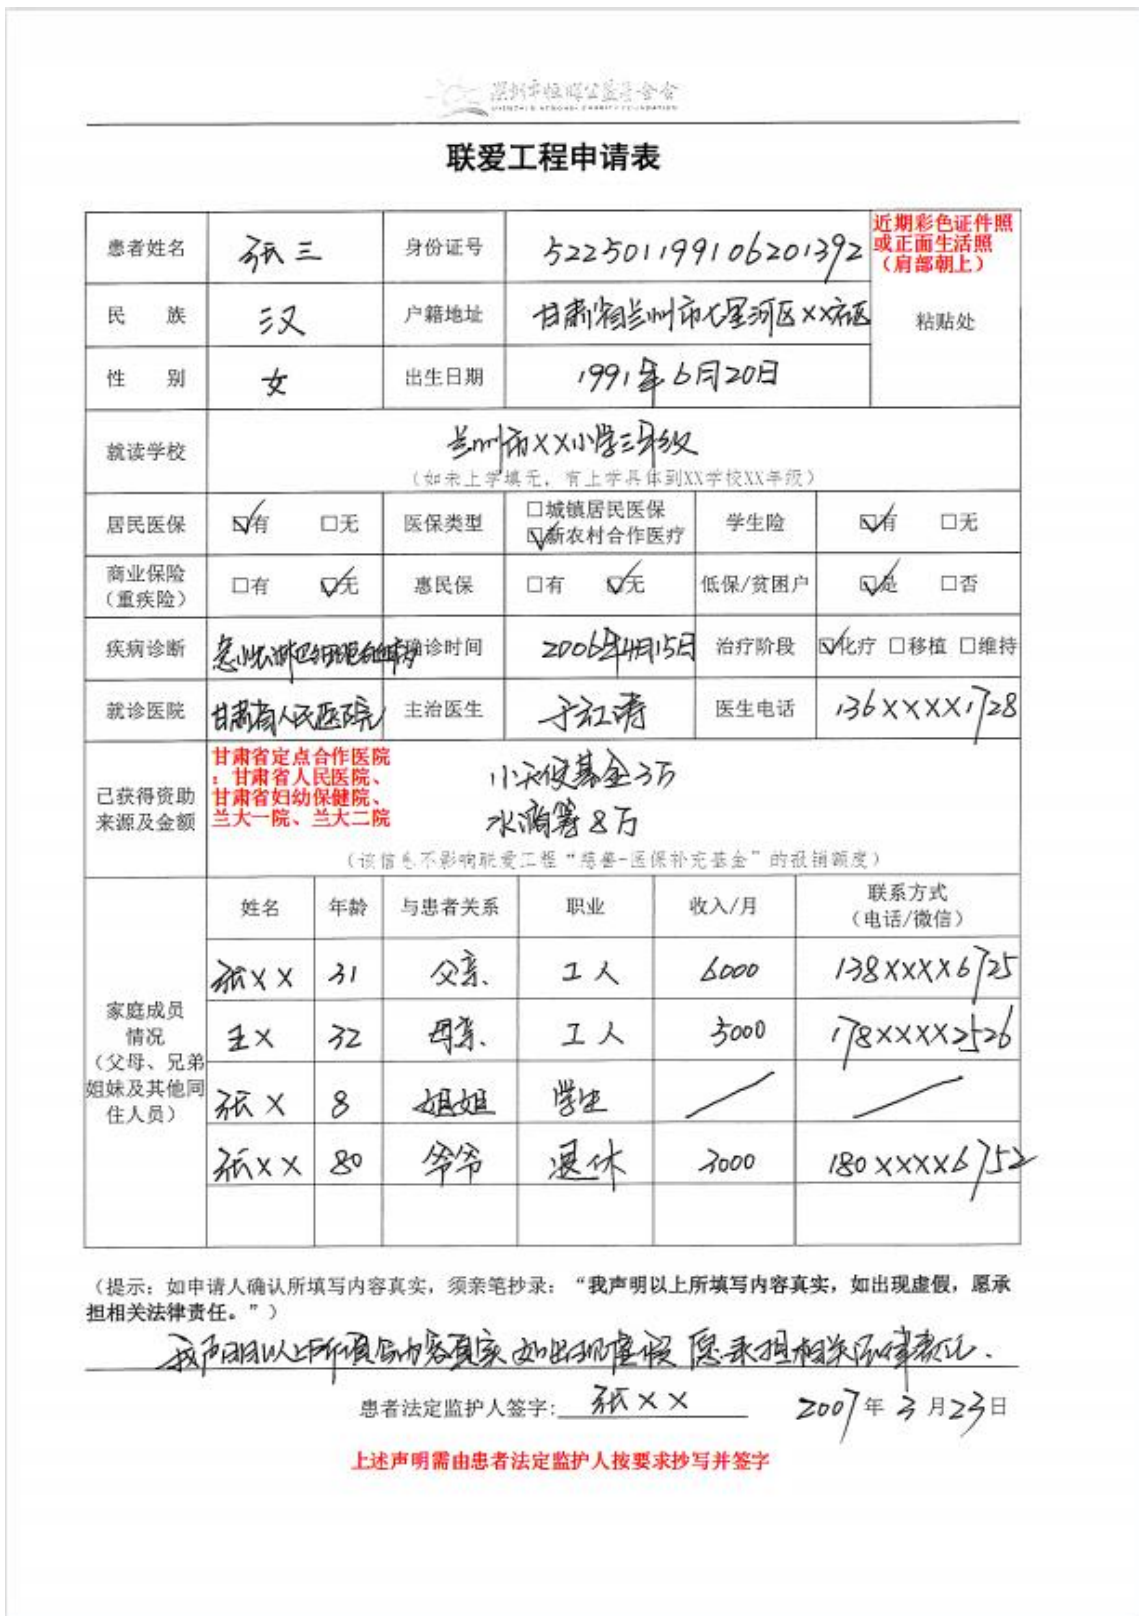 深圳市恒晖公益基金会
联爱工程申请表
患者姓名 张三 身份证号 522501199106201392 近期彩色证件照
或正面生活照
（肩部朝上）
民 族 汉 户籍地址 甘肃省兰州市七里河区XX社区 粘贴处
性 别 女 出生日期 1991年6月20日
就读学校 兰州市XX小学三年级
（如未上学填无，有上学具体到XX学校XX年级）
居民医保 ☑有 □无 医保类型 □城镇居民医保 ☑新农村合作医疗 学生险 ☑有 □无
商业保险（重疾险） □有 ☑无 惠民保 □有 ☑无 低保/贫困户 ☑是 □否
疾病诊断 急性淋巴细胞白血病 确诊时间 2006年4月15日 治疗阶段 ☑化疗 □移植 □维持
就诊医院 甘肃省人民医院 主治医生 于红涛 医生电话 136XXXX1728
甘肃省定点合作医院
：甘肃省人民医院、
甘肃省妇幼保健院、
兰大一院、兰大二院
已获得资助
来源及金额
小天使基金3万
水滴筹8万
（该信息不影响联爱工程“慈善-医保补充基金”的报销额度）
姓名 年龄 与患者关系 职业 收入/月 联系方式
（电话/微信）
家庭成员
情况
（父母、兄弟
姐妹及其他同
住人员）
张XX 31 父亲 工人 6000 138XXXX6725
王X 32 母亲 工人 5000 178XXXX2526
张X 8 姐姐 学生 / /
张XX 80 爷爷 退休 3000 180XXXX6752
（提示：如申请人确认所填写内容真实，须亲笔抄录：“我声明以上所填写内容真实，如出现虚假，愿承
担相关法律责任。”）
我声明以上所填写内容真实 如出现虚假 愿承担相关法律责任.
患者法定监护人签字: 张XX 2007年3月23日
上述声明需由患者法定监护人按要求抄写并签字